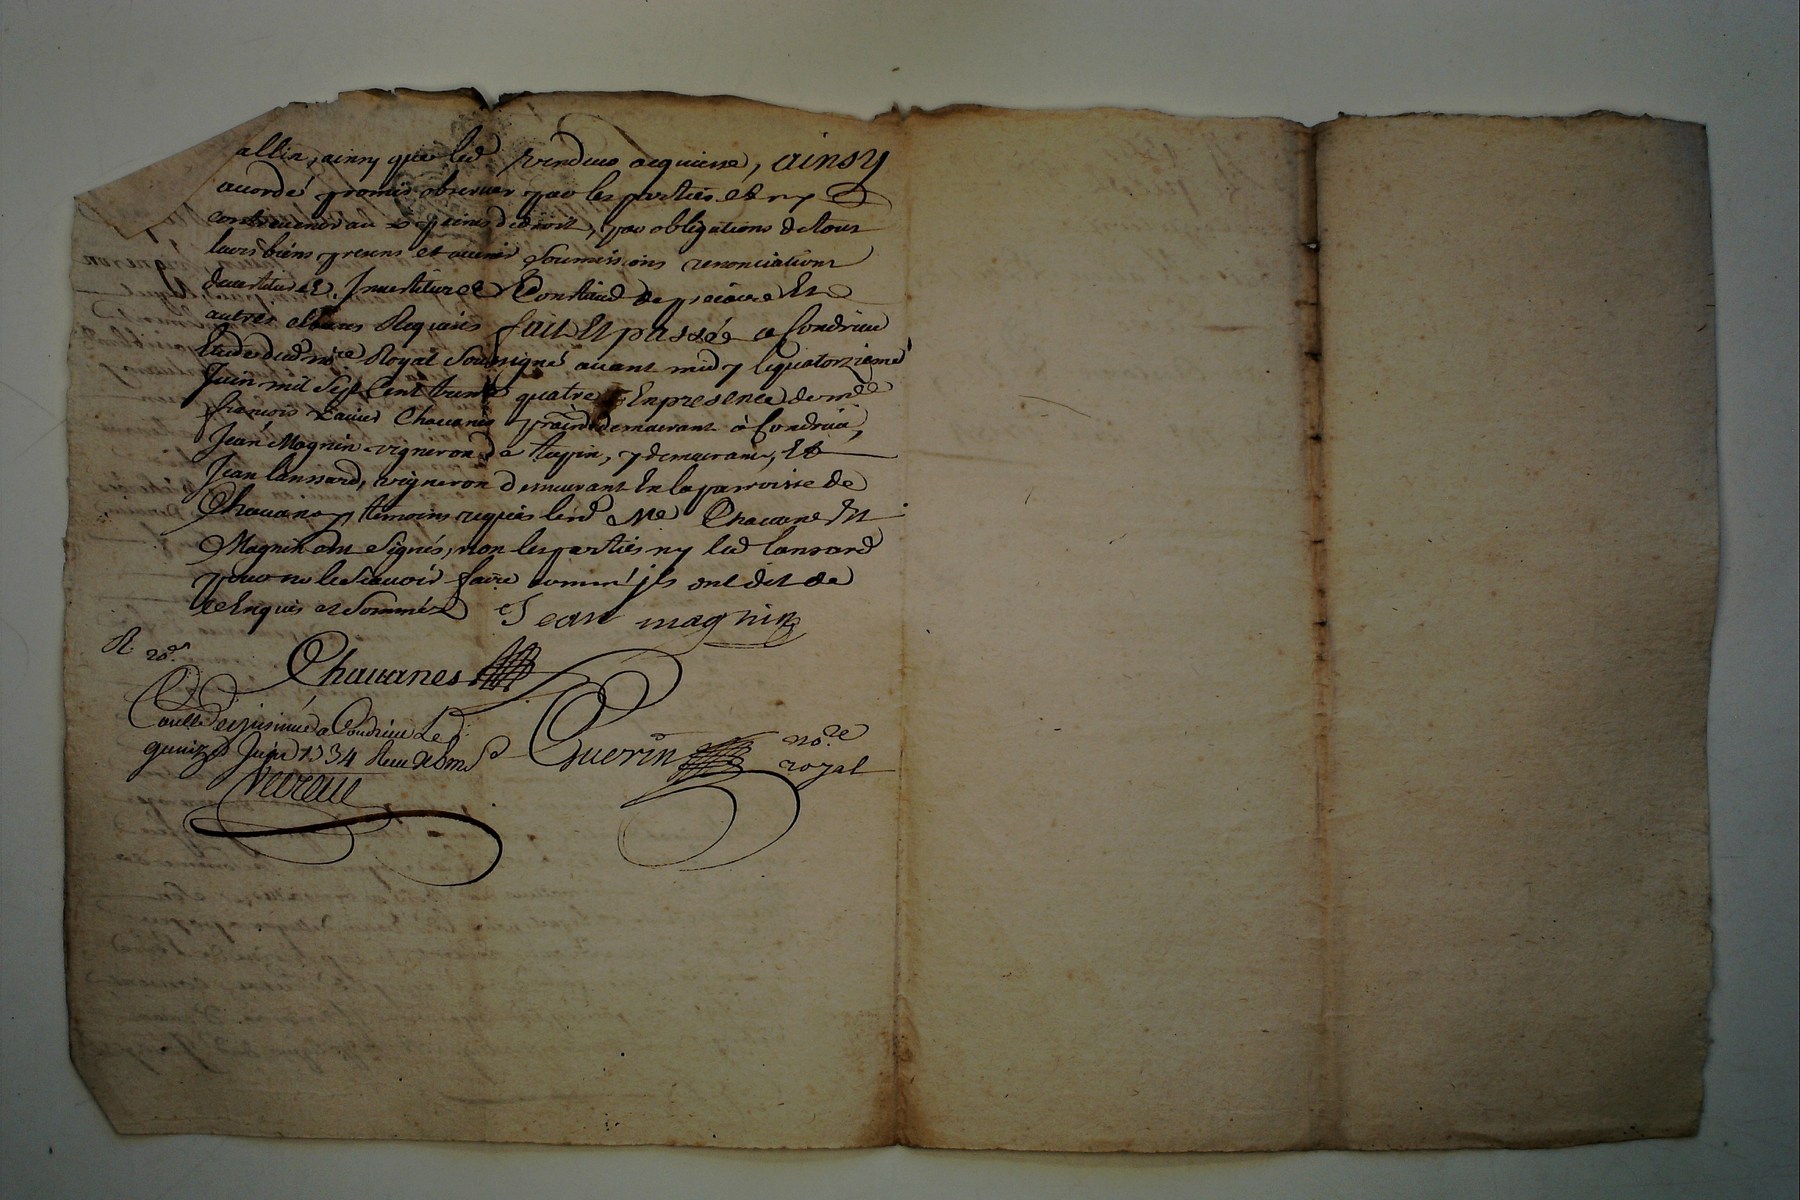 allin, ainsy que led vendeur acquiesse, ainsy
acordé promis observer par les parties et ny
contrevenir au peines de droit, par obligations de tous
leurs biens presens et avenir soumissions renonciations
devestitures Investitures Constitud de precaire Et
autres clauses Requises fait Et passé a Condrieu
Etude dud nre Royal soussigné avant midy le quatorzieme
Juin mil sept Cent trente quatre En presence de
françois Xavier Chavanes demeurant à Condrieu,
Jean Magnin vigneron de tupin, y demeurant, Et
Jean lansard, vigneron demeurant En la parroisse de
Chavanay temoins requis led Me Chavane Et
Magnin ont signés, non les parties ny led lansard
pour ne le scavoir faire comme jls ont dit de
ce Enquis et sommés Jean magnin
R
Chavanes
Con.llé & insinué a Condrieu Le
quinze Juin 1734 Reçu
Guerin no.re
royal